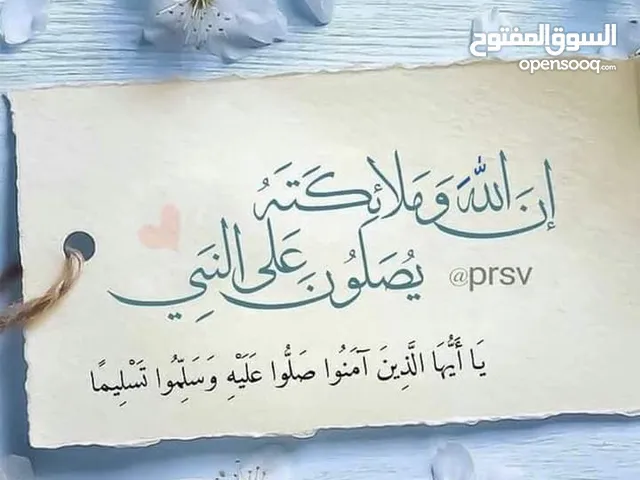 السوق المفتوح
opensooq.com
إن الله وملائكته
يصلون على النبي
@prsv
يَا أَيُّهَا الَّذِينَ آمَنُوا صَلُّوا عَلَيْهِ وَسَلِّمُوا تَسْلِيمًا